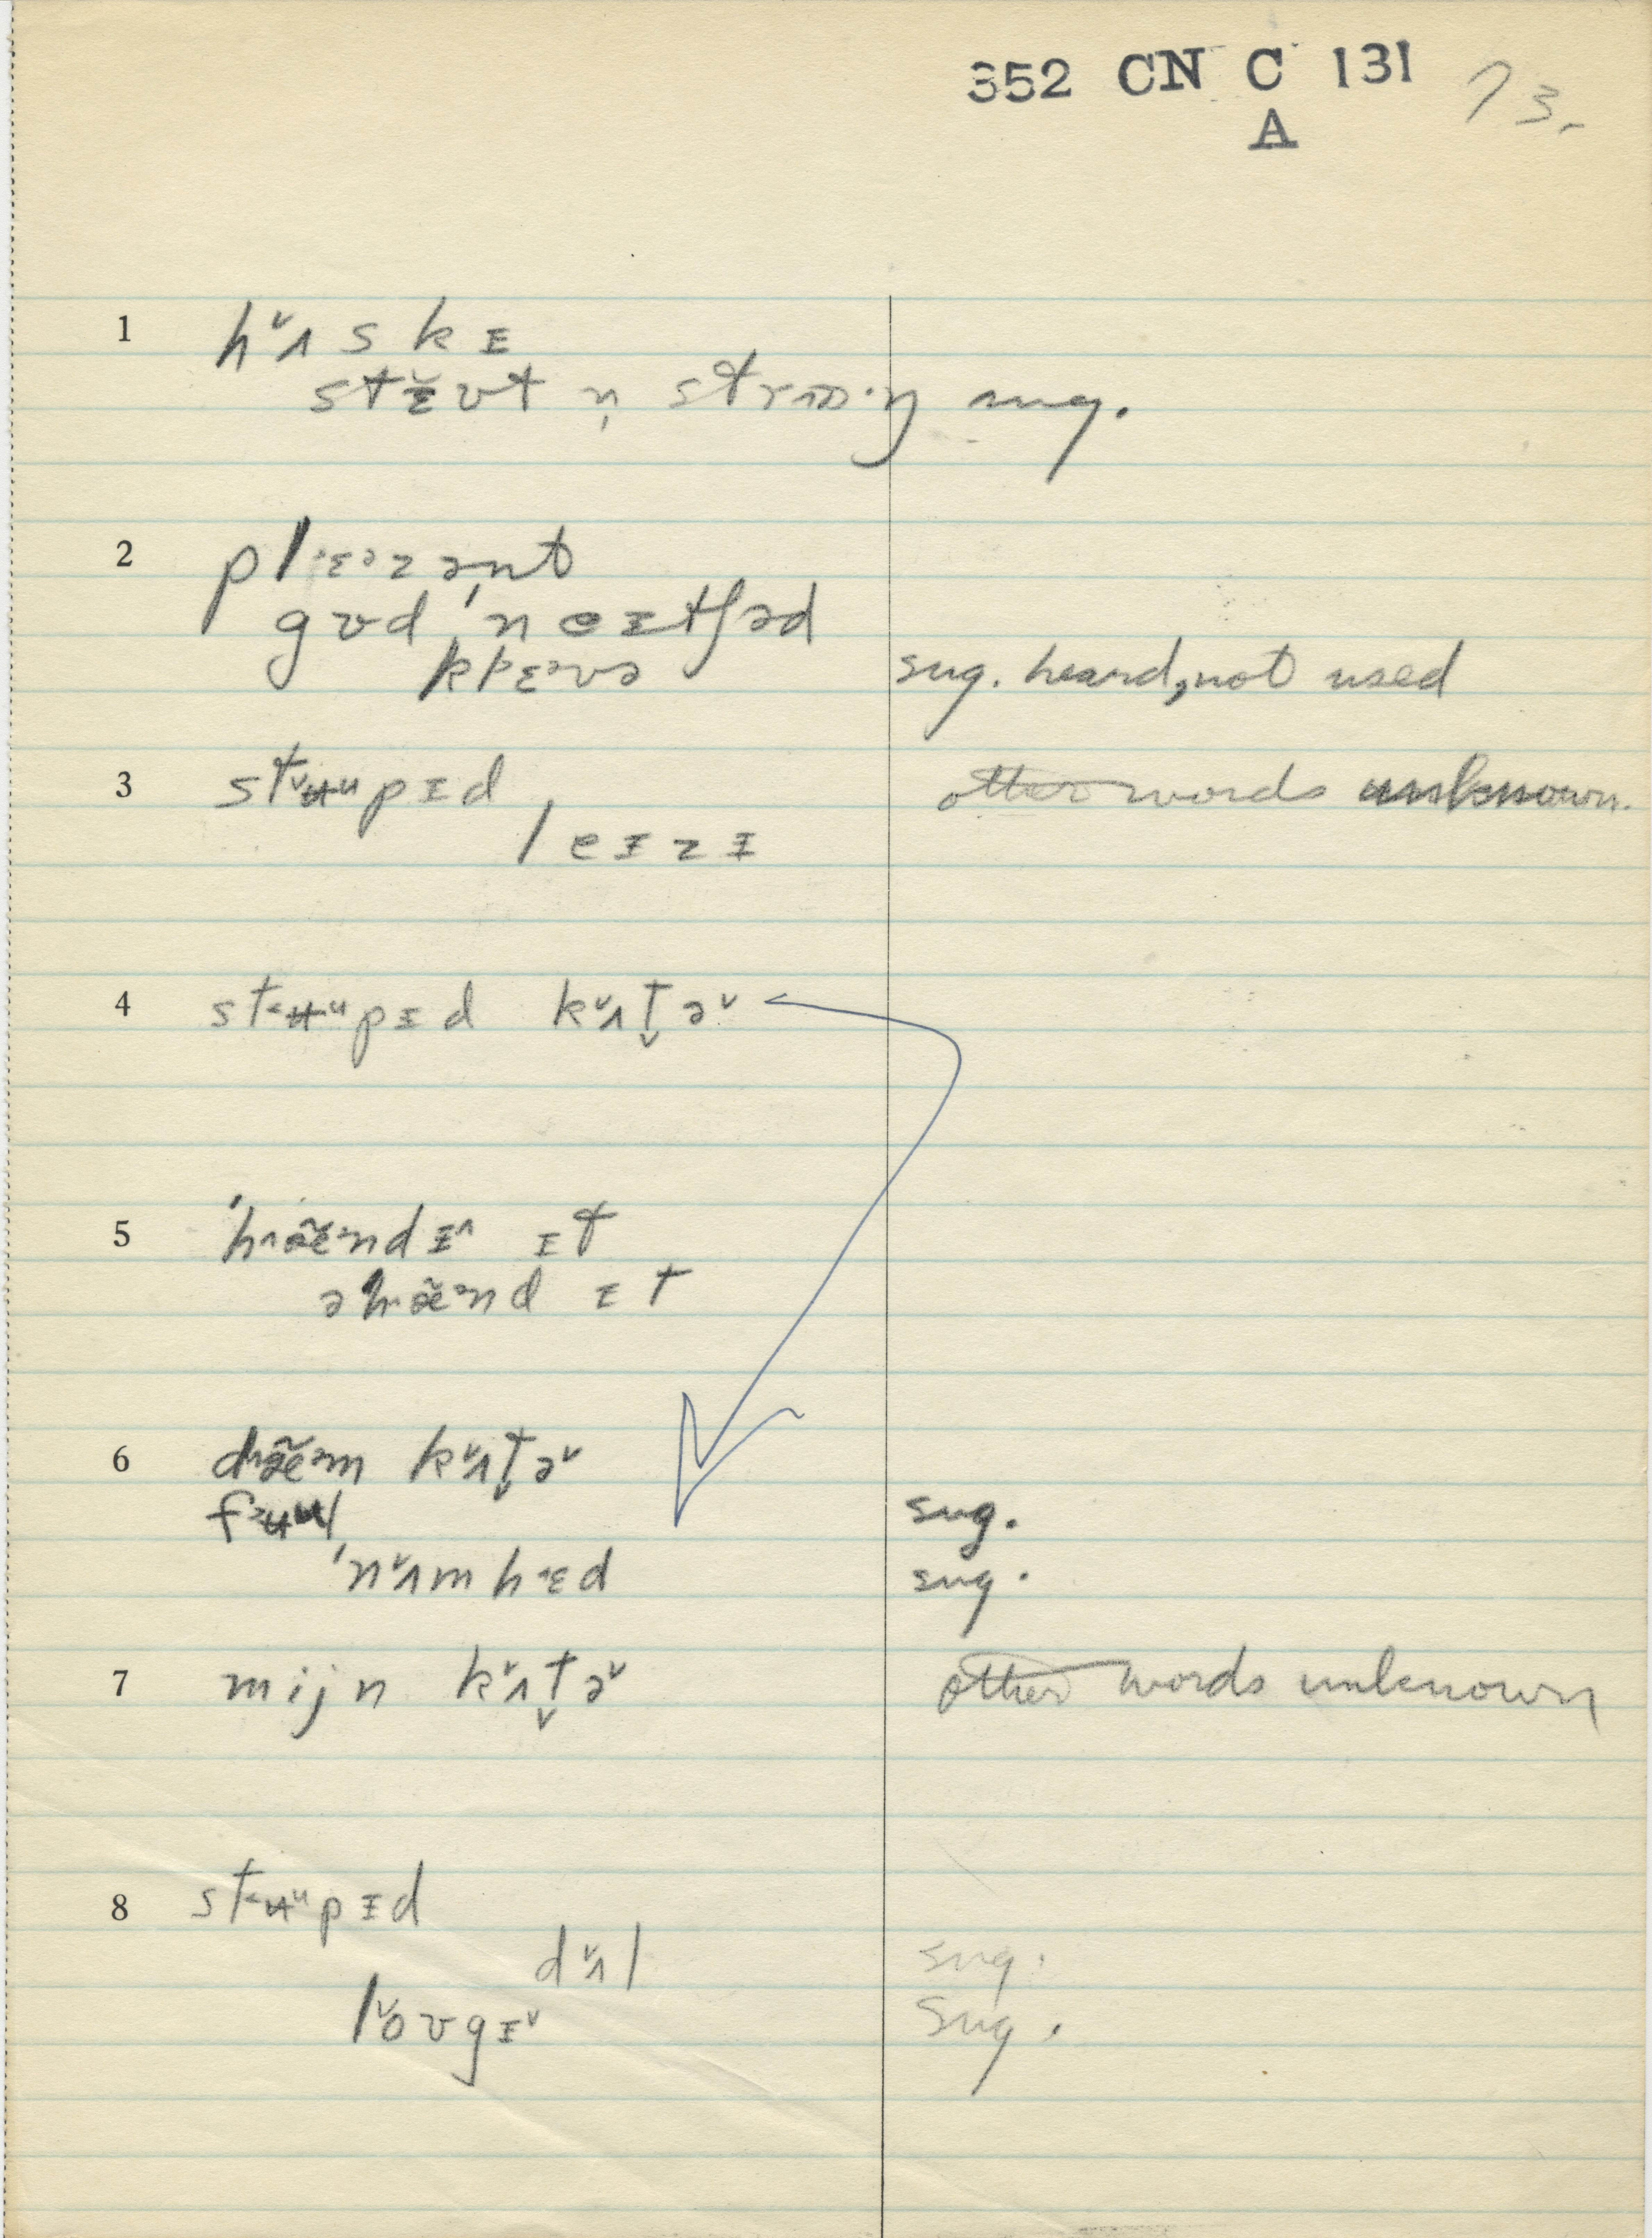 352 CN C 131 73.
A
1 hᵛʌskɪ
stɛ̆ʊt n̩ strɒɒ·ŋ sug.
2 pl·ɛᵊzənt
gʊd ˈneɪtʃəd
klɛᵊvə sug. heard, not used
3 stᵛʉᵘpɪd, other words unknown.
leɪzɪ
4 stʉᵘpɪd kᵛʌt̬əᵛ
5 ˈhæ̃ᵋndɪ^ ɪt
əhæ̃ᵋnd ɪt
6 dæ̃ᵋm kᵛʌt̬əᵛ
fᵊʉul sug.
ˈnᵛʌmhɛd sug.
7 mijn kᵛʌt̬əᵛ other words unknown
8 stʉᵘpɪd
dᵛʌl sug.
lᵛoʊgɪᵛ sug.